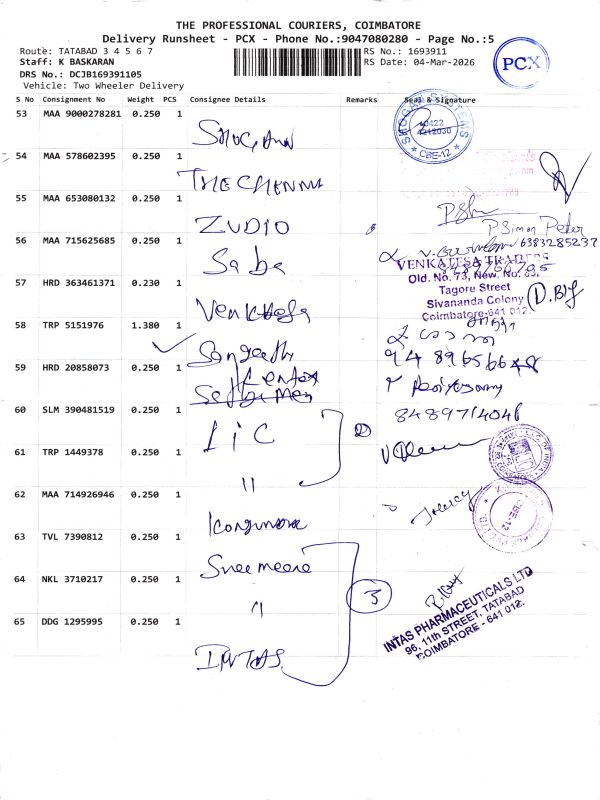 THE PROFESSIONAL COURIERS, COIMBATORE
Delivery Runsheet - PCX - Phone No.:9047080280 - Page No.:5
Route: TATABAD 3 4 5 6 7
RS No.: 1693911
Staff: K BASKARAN
RS Date: 04-Mar-2026
DRS No.: DCJB169391105
Vehicle: Two Wheeler Delivery
PCX
S No Consignment No Weight PCS Consignee Details Remarks Seal & Signature
53 MAA 9000278281 0.250 1
CBE-12
54 MAA 578602395 0.250 1
THE CHENNAI
55 MAA 653080132 0.250 1
ZUDIO
P Simon Peter
6383285237
56 MAA 715625685 0.250 1
Saba
VENKATESA TRADERS
Old. No. 73, New. No. 89,
Tagore Street
Sivananda Colony
Coimbatore-641 012.
57 HRD 363461371 0.230 1
Venkatesa
58 TRP 5151976 1.380 1
Sangeeth
59 HRD 20858073 0.250 1
8489714046
60 SLM 390481519 0.250 1
LIC
2
61 TRP 1449378 0.250 1
"
62 MAA 714926946 0.250 1
CBE-12
63 TVL 7390812 0.250 1
Sreemeera
64 NKL 3710217 0.250 1
"
3
65 DDG 1295995 0.250 1
INTAS
INTAS PHARMACEUTICALS LTD
96, 11th STREET, TATABAD
COIMBATORE - 641 012.